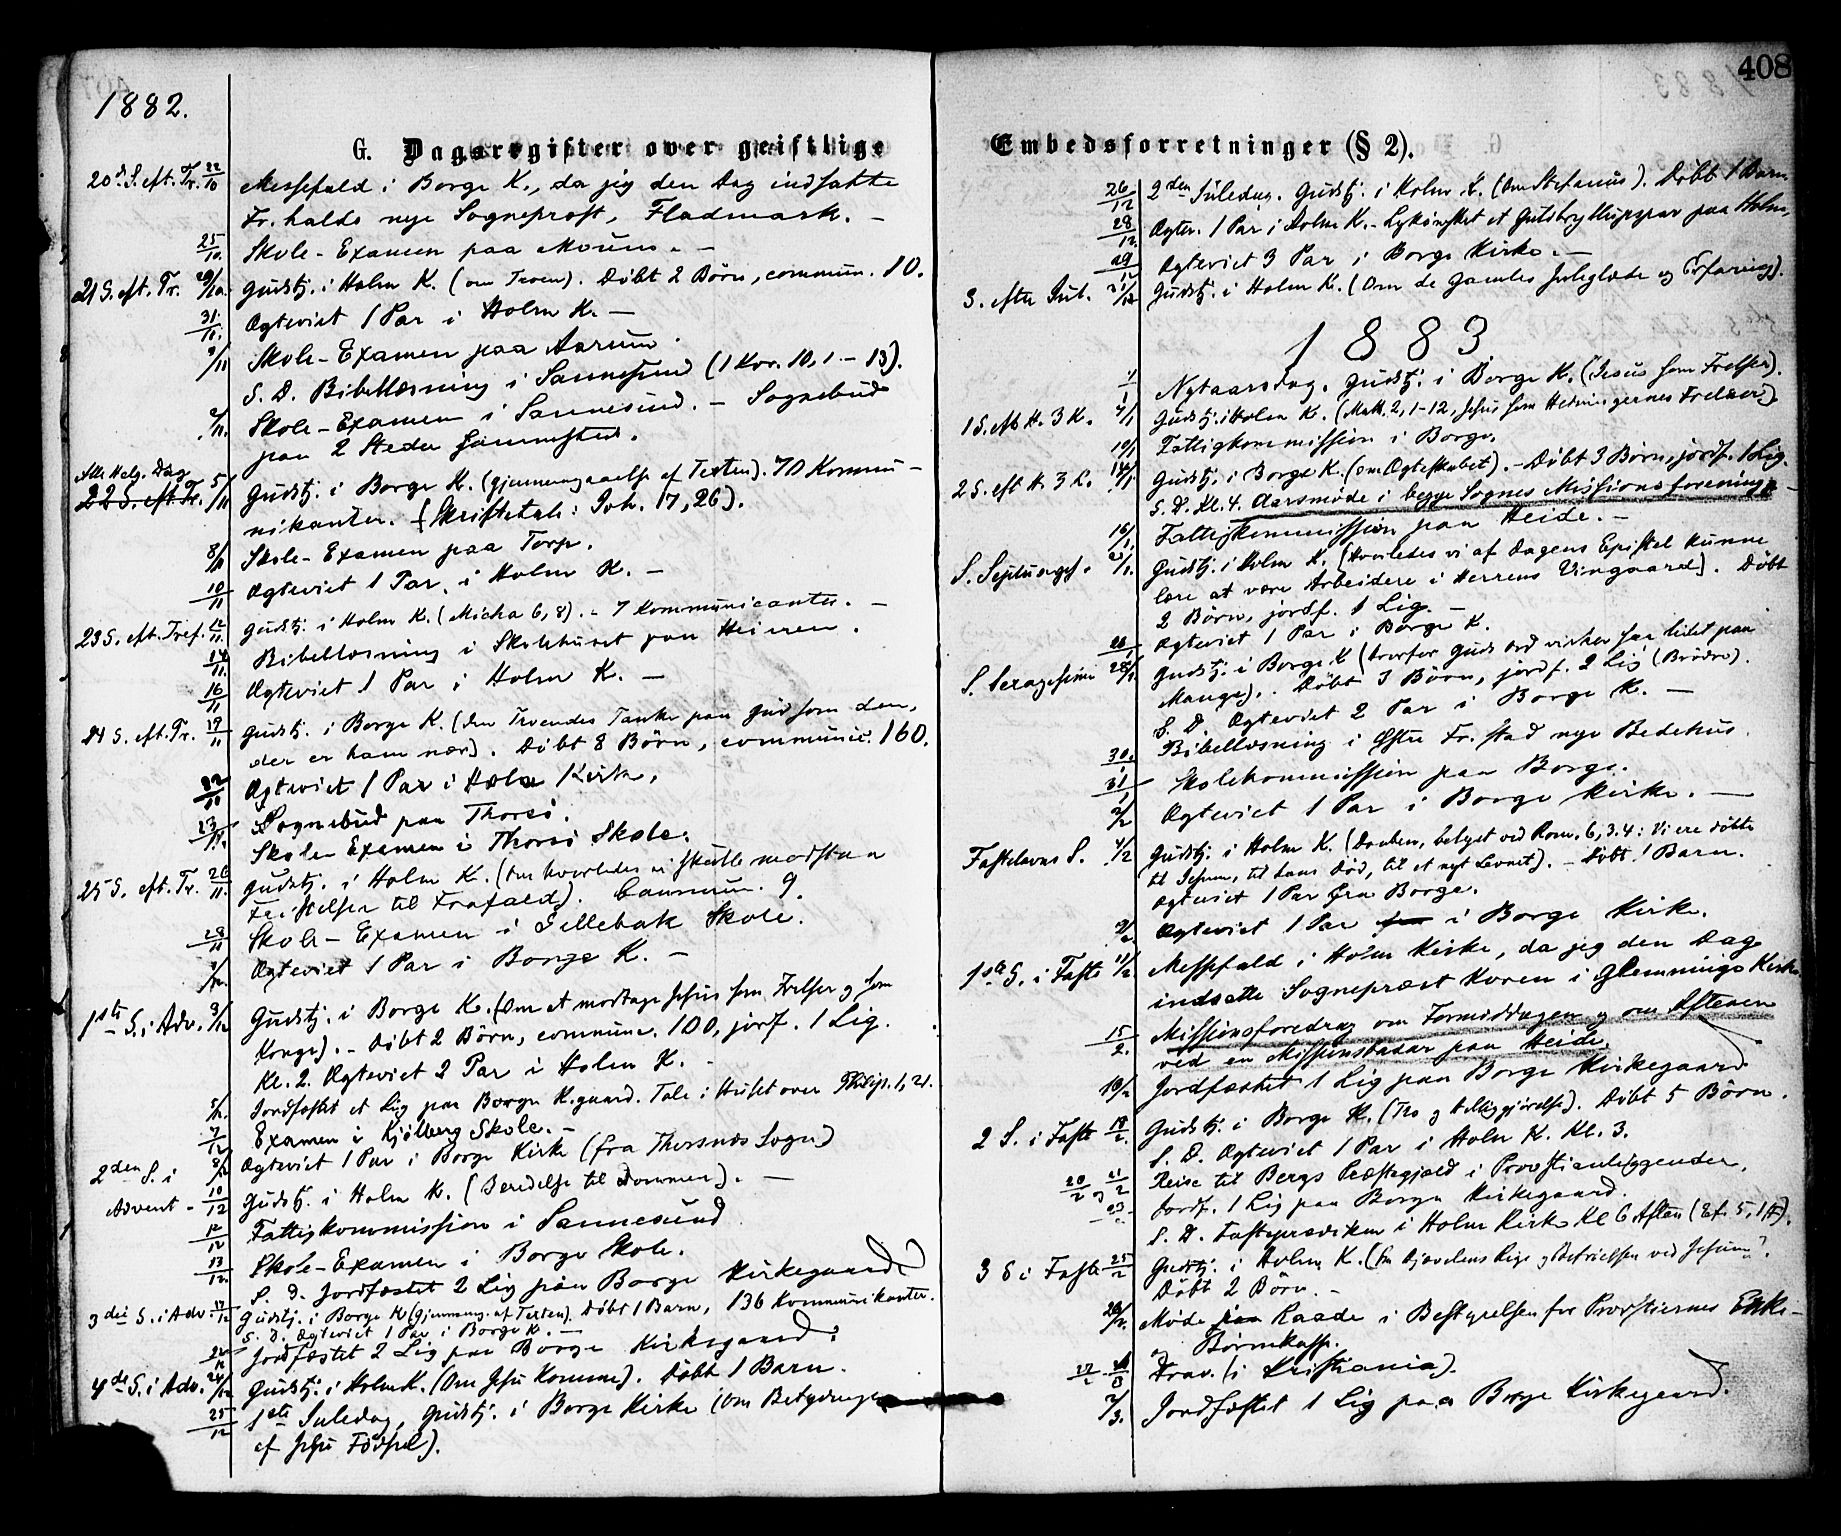 1882.
408
G. Dagsregister over geistlige
Embedsforretninger (§ 2).
20d. S. eft. Tr. 22/10 Messefald i Borge K., da jeg den Dag indsatte
Fr.halds nye Sogneprost, Fladmark. –
25/10. Skole-Examen paa Moum. –
21 S. eft. Tr. 29/10. Gudstj. i Holm K. (om Troen). Döbt 2 Börn, commun. 10.
31/10. Ægteviet 1 Par i Holm K. –
/11 Skole-Examen paa Aarum.
S. D. Bibellæsning i Sannesund (1 Kor. 10, 1–13).
2/11. Skole-Examen i Sannesund. – Sognebud
paa 2 Steder sammesteds.
Alle Helg. Dag
22 S. eft. Tr. 5/11 Gudstj. i Borge K. (gjennemgaaelse af Texten). 70 Kommu-
nikanter. (Skriftetale: Joh. 17, 26).
8/11 Skole-Examen paa Torp.
10/11 Ægteviet 1 Par i Holm K. –
23 S. eft. Tref. 12/11. Gudstj. i Holm K. (Micha 6, 8). – 7 Kommunicanter. –
14/11. Bibellæsning i Skolehuset paa Heieren.
16/11 Ægteviet 1 Par i Holm K. –
24 S. eft. Tr. 19/11 Gudstj. i Borge K. (den Troendes Tanke paa Gud som den,
der er ham nær). Döbt 8 Börn, communic. 160.
22/11 Ægteviet 1 Par i Holm Kirke.
23/11. Sognebud paa Thorsö.
Skole-Examen i Thorsö Skole.
25 S. eft. Tr. 26/11. Gudstj. i Holm K. (Om hvorledes vi skulle modstaa
Fristelser til Frafald). Commun. 9.
28/11 Skole-Examen i Lillebæk Skole.
1/12. Ægteviet 1 Par i Borge K. –
1ste S. i Adv. 3/12 Gudstj. i Borge K. (Om at modtage Jesus som Frelser og som
Konge). – Döbt 2 Börn, commun. 100, jorf. 1 Lig.
Kl. 2. Ægteviet 2 Par i Holm K. –
5/12. Jordfæstet et Lig paa Borge K.gaard. Tale i Huset over Philip. 1, 21.
7/12 Examen i Kjölberg Skole. –
8/12 Ægteviet 1 Par i Borge Kirke (fra Thorsnæs Sogn)
2den S. i
Advent – 10/12 Gudstj. i Holm K. (Beredelse til Dommen). –
12/12 Fattigkommission i Sannesund
13/12. Skole-Examen i Borge Skole.
S. D. Jordfæstet 2 Lig paa Borge Kirkegaard
3die S. i Adv. 17/12 Gudstj. i Borge K (Gjennemg. af Texten). Döbt 1 Barn, 136 Kommunikanter.
S. D. Ægteviet 1 Par i Borge K. –
22/12 Jordfæstet 2 Lig paa Borge Kirkegaard.
4de S. i Adv. 24/12 Gudstj. i Holm K. (Om Jesu Komme). Döbt 1 Barn.
25/12 1ste Juledag, Gudstj. i Borge Kirke (Om Betydningen
af Jesu Födsel).
26/12 2den Juledag. Gudstj. i Holm K. (Om Stefanus). Döbt 1 Barn
28/12. Ægtev. 1 Par i Holm K. – Lykönsket et Guldbryllupspar paa Holm,
29/12 Ægteviet 3 Par i Borge Kirke. –
S. efter Jul. 31/12 Gudstj. i Holm K. (Om de Gamles Juleglæde og Erfaring).
1883
1/1 Nytaarsdag. Gudstj. i Borge K. (Jesus som Frelser).
1 S. eft H. 3 K. 7/1 Gudstj. i Holm K. (Matt. 2, 1–12, Jesus som Hedningernes Frelser)
10/1 Fattigkommission i Borge.
2 S. eft H. 3 K. 14/1 Gudstj. i Borge K. (om Ægteskabet). – Döbt 3 Börn, jordf. 1 Lig.
S. D. Kl. 4. Aarsmöde i begge Sognes Missionsforening –
16/1. Fattigkommission paa Heide. –
S. Septuages. 21/1. Gudstj. i Holm K. (Hvorledes vi af Dagens Epistel kunne
lære at være Arbeidere i Herrens Vingaard). Döbt
2 Börn, jordf. 1 Lig. –
26/1 Ægteviet 1 Par i Borge K.
S. Sexagesima 28/1. Gudstj. i Borge K (hvorfor Guds Ord virker saa lidet paa
Mange). Döbt 3 Börn, jordf. 2 Lig (Brödre).
S. D. Ægteviet 2 Par i Borge K. –
30/1. Bibellæsning i Östre Fr.stad nye Bedehus.
31/1 Skolekommission paa Borge.
2/2 Ægteviet 1 Par i Borge Kirke. –
Fastelavns S. 4/2 Gudstj. i Holm K. (Daaben, belyst ved Rom. 6, 3.4: Vi ere döbte
til Jesum, til hans Död, til et nyt Levnet). – Döbt 1 Barn.
Ægteviet 1 Par fra Borge.
9/2 Ægteviet 1 Par i Borge Kirke.
1ste S. i Faste 11/2 Messefald i Holm Kirke, da jeg den Dag
indsatte Sognepræst Koren i Glemminge Kirke
15/2. Missionsforedrag om Formiddagen og om Aftenen
ved en Missionsbasar paa Heide.
16/2 Jordfæstet 1 Lig paa Borge Kirkegaard
2 S. i Faste 18/2. Gudstj. i Borge K. (Tro og Helliggjörelse). Döbt 5 Börn.
S. D. Ægteviet 1 Par i Holm K. Kl. 3.
20/2 og 21/2 Reise til Bergs Præstegjæld i Provstianliggender.
23/2 Jordf. 1 Lig paa Borge Kirkegaard.
S. D. Fasteprædiken i Holm Kirke Kl 6 Aften (Ef. 5, 14).
3 S i Faste 25/2 Gudstj. i Holm K. (Om Djævelens Rige og Befrielsen ved Jesum).
Döbt 2 Börn. –
26/2. Möde paa Raade i Bestyrelsen for Provstiernes Enke-
og Börnekasse.
27/2 – /3 Frav. (i Kristiania).
7/3. Jordfæstet 1 Lig paa Borge Kirkegaard.